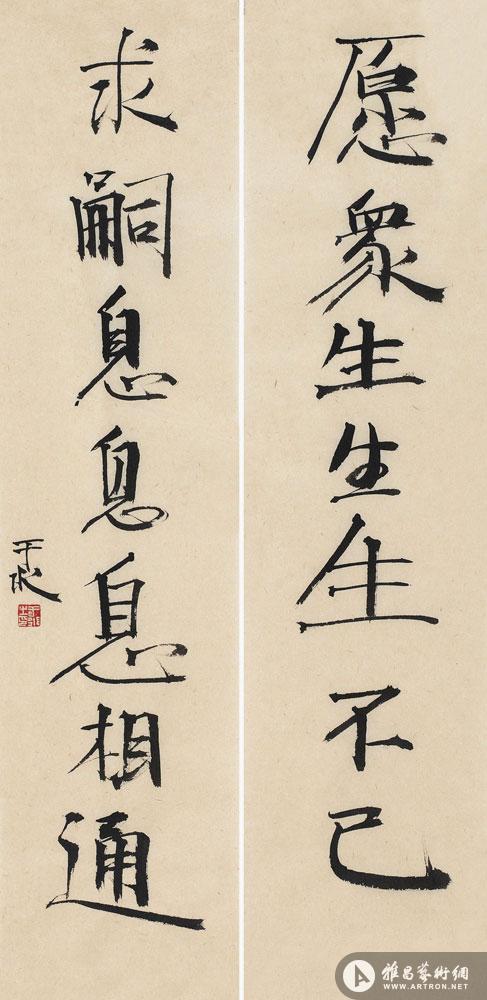 愿衆生生生不已
求嗣息息息相通
于水
雅昌藝術網
WWW.ARTRON.NET